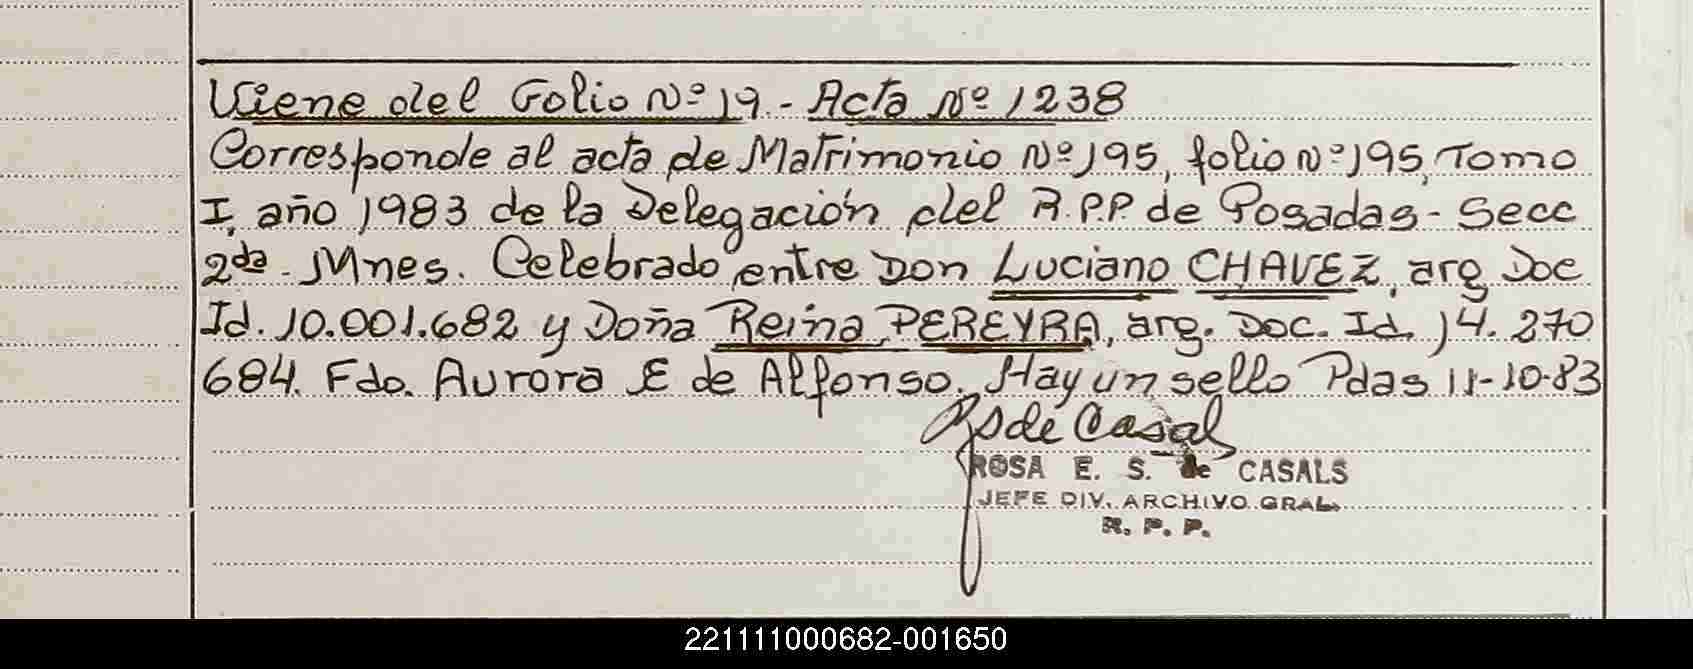 Viene del Folio Nº 19.- Acta Nº 1238
Corresponde al acta de Matrimonio Nº 195, folio Nº 195, Tomo
I, año 1983 de la Delegación del R.P.P. de Posadas - Secc
2da. Mnes. Celebrado entre Don Luciano CHAVEZ, arg Doc
Id. 10.001.682 y Doña Reina PEREYRA, arg. Doc. Id. 14.270
684. Fdo. Aurora E de Alfonso. Hay un sello Pdas 11-10-83
RSde Casal
ROSA E. S. de CASALS
JEFE DIV. ARCHIVO GRAL.
R. P. P.
221111000682-001650